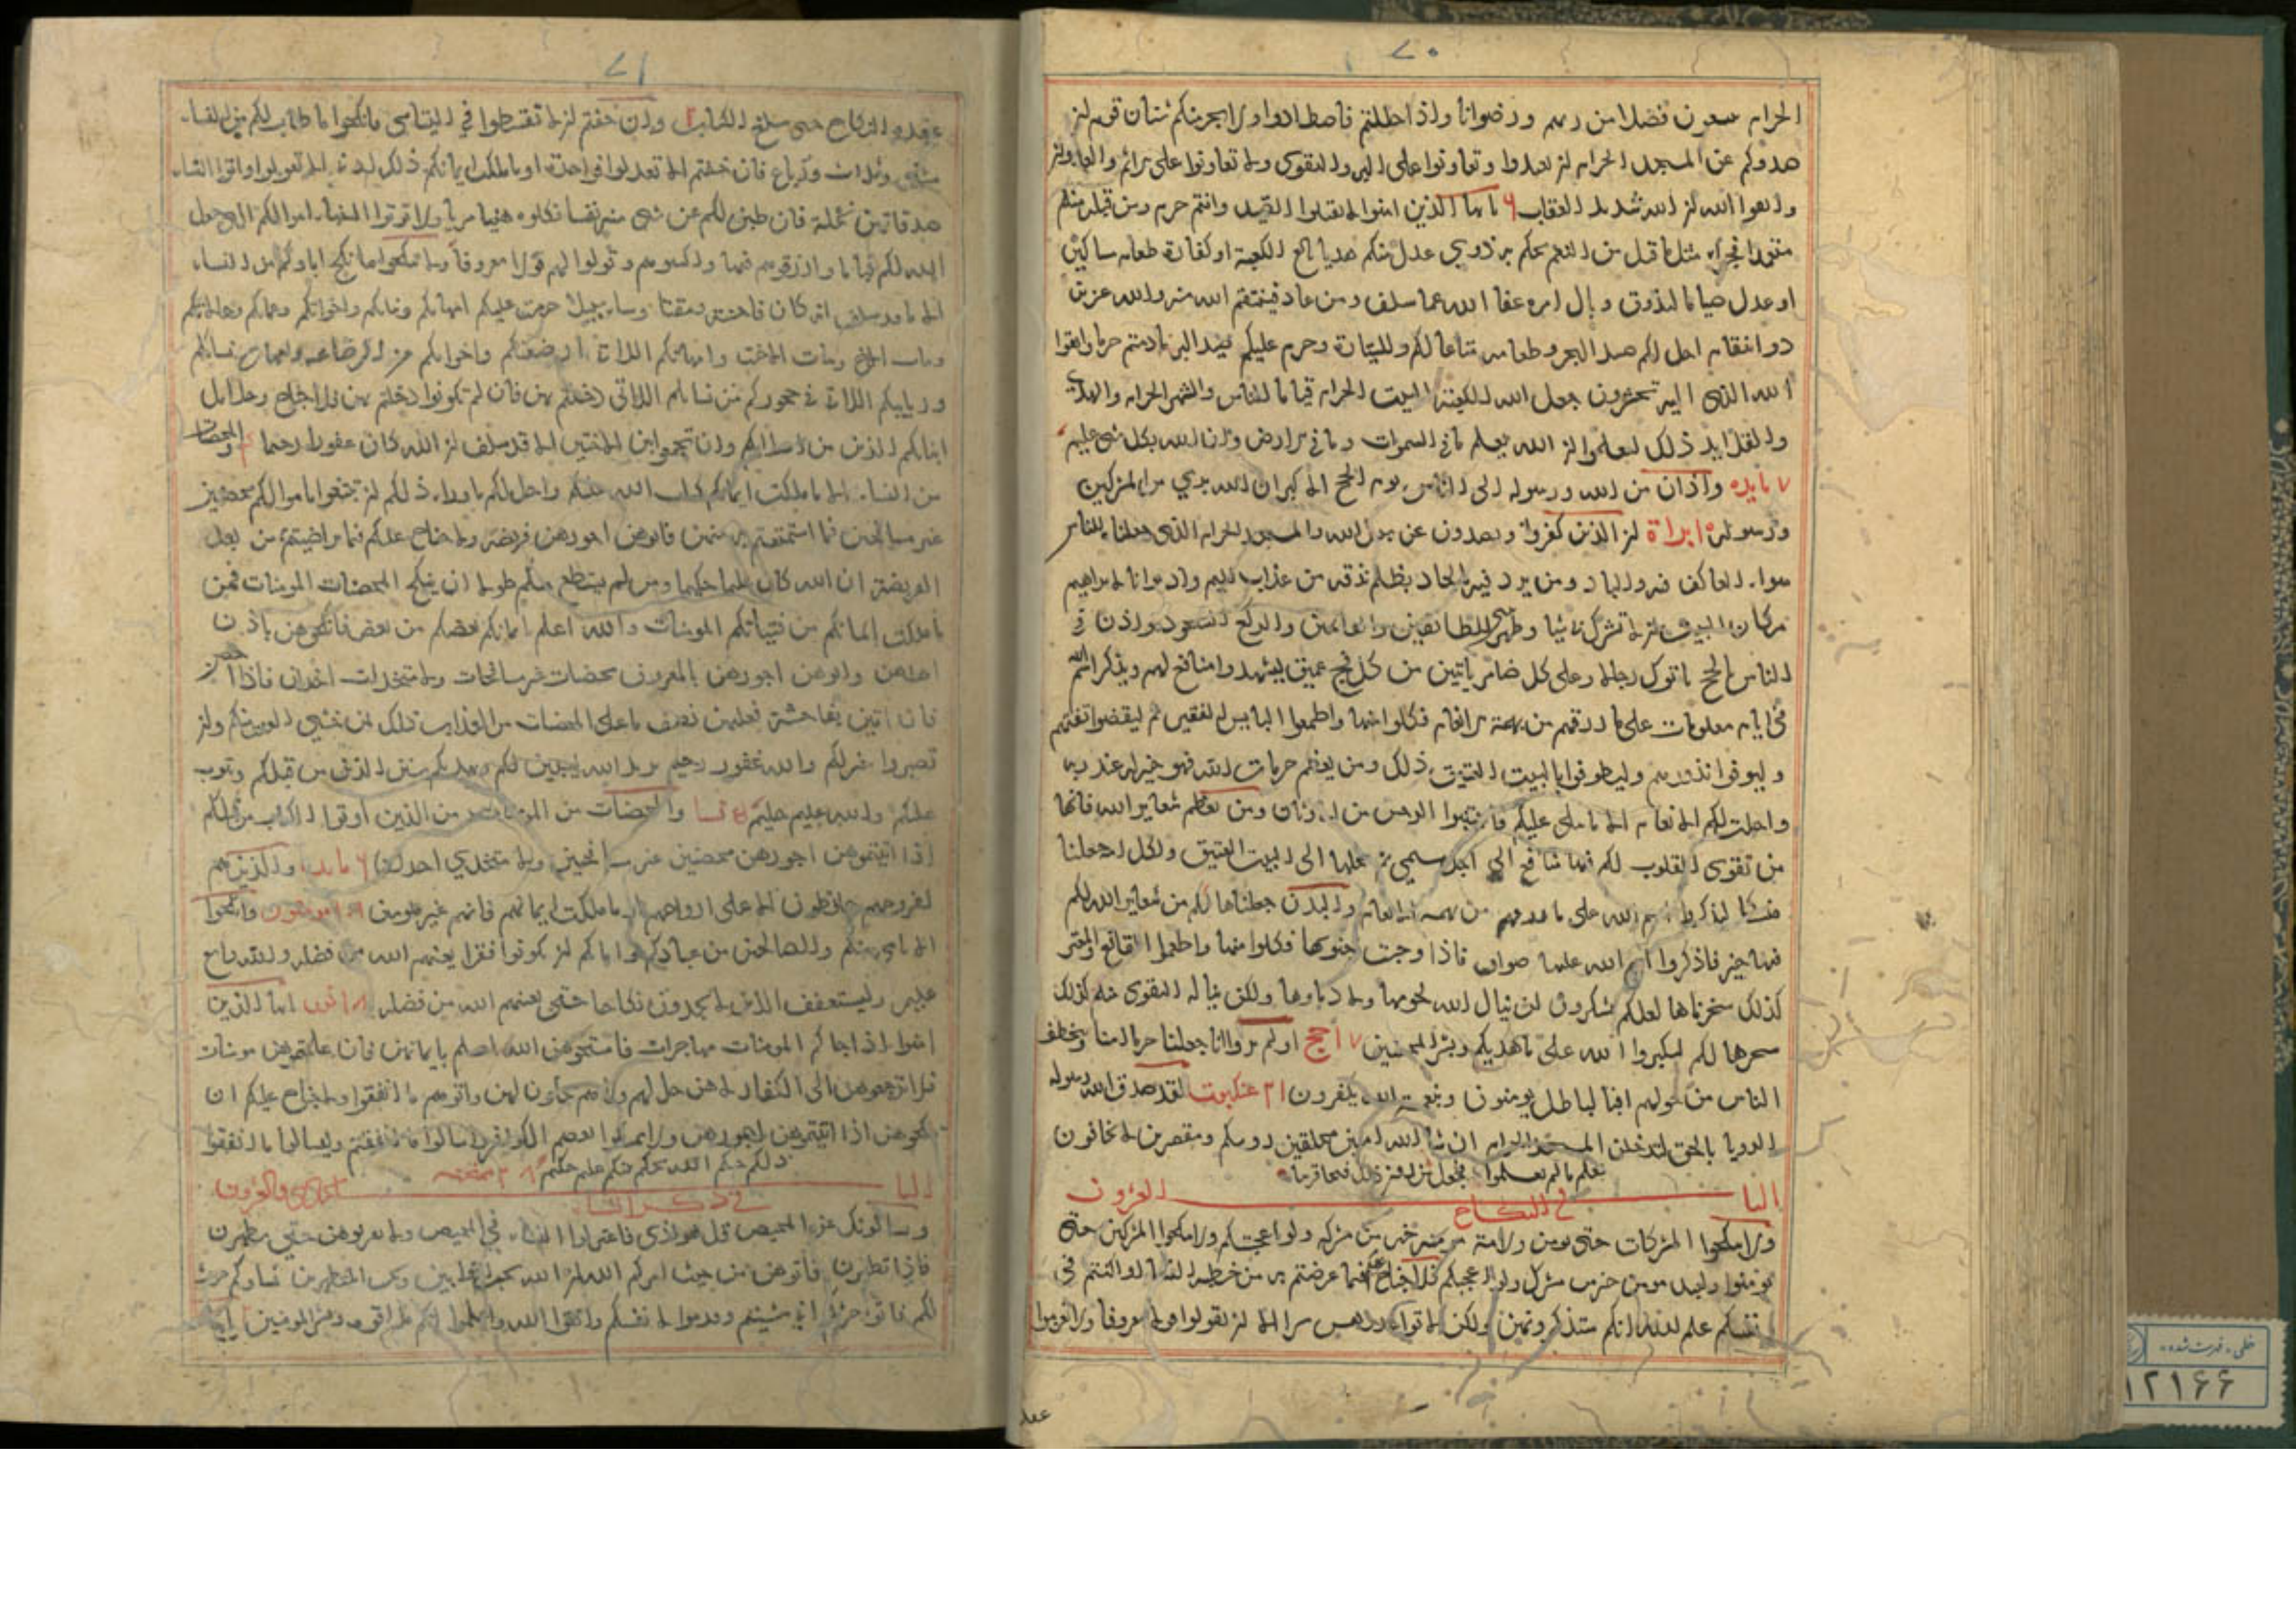 ٧٠
الحرام يبتغون فضلا من ربهم ورضوانا واذا حللتم فاصطادوا ولا يجرمنكم شنآن قوم ان
صدوكم عن المسجد الحرام ان تعتدوا وتعاونوا على البر والتقوى ولا تعاونوا على الاثم والعدوان
واتقوا الله ان الله شديد العقاب ٦ يا ايها الذين امنوا لا تقتلوا الصيد وانتم حرم ومن قتله منكم
متعمدا فجزاء مثل ما قتل من النعم يحكم به ذوي عدل منكم هديا بالغ الكعبة او كفارة طعام مساكين
او عدل صياما ليذوق وبال امره عفا الله عما سلف ومن عاد فينتقم الله منه والله عزيز
ذو انتقام احل لكم صيد البحر وطعامه متاعا لكم وللسيارة وحرم عليكم صيد البر مادمتم حرما واتقوا
الله الذي اليه تحشرون جعل الله الكعبة البيت الحرام قياما للناس والشهر الحرام والهدى
والقلايد ذلك لتعلموا ان الله يعلم ما في السموات وما في الارض وان الله بكل شي عليم
٧ مايده واذان من الله ورسوله الى الناس يوم الحج الاكبر ان الله بري من المشركين
ورسوله ١ براة ان الذين كفروا ويصدون عن سبيل الله والمسجد الحرام الذي جعلناه للناس
سواء العاكف فيه والباد ومن يرد فيه بالحاد بظلم نذقه من عذاب اليم واذ بوانا لابراهيم
مكان البيت ان لا تشرك بي شيا وطهر بيتي للطائفين والقائمين والركع السجود واذن في
الناس بالحج ياتوك رجالا وعلى كل ضامر ياتين من كل فج عميق ليشهدوا منافع لهم ويذكروا اسم الله
في ايام معلومات على ما رزقهم من بهيمة الانعام فكلوا منها واطعموا البايس الفقير ثم ليقضوا تفثهم
وليوفوا نذورهم وليطوفوا بالبيت العتيق ذلك ومن يعظم حرمات الله فهو خير له عند ربه
واحلت لكم الانعام الا ما يتلى عليكم فاجتنبوا الرجس من الاوثان ومن يعظم شعاير الله فانها
من تقوى القلوب لكم فيها منافع الى اجل مسمى ثم محلها الى البيت العتيق ولكل امة جعلنا
منسكا ليذكروا اسم الله على ما رزقهم من بهيمة الانعام والبدن جعلناها لكم من شعاير الله لكم
فيها خير فاذكروا اسم الله عليها صواف فاذا وجبت جنوبها فكلوا منها واطعموا القانع والمعتر
كذلك سخرناها لعلكم تشكرون لن ينال الله لحومها ولا دماوها ولكن يناله التقوى منكم كذلك
سخرها لكم لتكبروا الله على ما هديكم وبشر المحسنين ٧ احج اولم يروا انا جعلنا حرما امنا ويتخطف
الناس من حولهم افبالباطل يومنون وبنعمة الله يكفرون ٢١ عنكبوت لقد صدق الله رسوله
الرويا بالحق لتدخلن المسجد الحرام ان شا الله امنين محلقين روسكم ومقصرين لا تخافون
فعلم ما لم تعلموا فجعل من دون ذلك فتحا قريبا
الباب العشرون
في النكاح
ولا تنكحوا المشركات حتى يومن ولامة مومنة خير من مشركة ولو اعجبتكم ولا تنكحوا المشركين حتى
يومنوا ولعبد مومن خير من مشرك ولو اعجبكم ولا جناح عليكم فيما عرضتم به من خطبة النسا او اكننتم في
انفسكم علم الله انكم ستذكرونهن ولكن لا تواعدوهن سرا الا ان تقولوا قولا معروفا ولا تعزموا
عقد
٧١
عقدة النكاح حتى يبلغ الكتاب ٢ وان خفتم ان لا تقسطوا في اليتامى فانكحوا ما طاب لكم من النساء
مثنى وثلاث ورباع فان خفتم الا تعدلوا فواحدة او ما ملكت ايمانكم ذلك ادنى الا تعولوا واتوا النساء
صدقاتهن نحلة فان طبن لكم عن شي منه نفسا فكلوه هنيا مريا ولا توتوا السفهاء اموالكم التي جعل
الله لكم قياما وارزقوهم فيها واكسوهم وقولوا لهم قولا معروفا ولا تنكحوا ما نكح اباوكم من النساء
الا ما قد سلف انه كان فاحشة ومقتا وساء سبيلا حرمت عليكم امهاتكم وبناتكم واخواتكم وعماتكم وخالاتكم
وبنات الاخ وبنات الاخت وامهاتكم اللاتي ارضعنكم واخواتكم من الرضاعة وامهات نسايكم
وربايبكم اللاتي في حجوركم من نسايكم اللاتي دخلتم بهن فان لم تكونوا دخلتم بهن فلا جناح وحلايل
ابنايكم الذين من اصلابكم وان تجمعوا بين الاختين الا قد سلف ان الله كان غفورا رحيما والمحصنات
من النساء الا ما ملكت ايمانكم كتاب الله عليكم واحل لكم ما وراء ذلكم ان تبتغوا باموالكم محصنين
غير مسافحين فما استمتعتم به منهن فاتوهن اجورهن فريضة ولا جناح عليكم فيما تراضيتم من بعد
الفريضة ان الله كان عليما حكيما ومن لم يستطع منكم طولا ان ينكح المحصنات المومنات فمن
ما ملكت ايمانكم من فتياتكم المومنات والله اعلم بايمانكم بعضكم من بعض فانكحوهن باذن
اهلهن واتوهن اجورهن بالمعروف محصنات غير مسافحات ولا متخذات اخدان فاذا احصن
فان اتين بفاحشة فعليهن نصف ما على المحصنات من العذاب ذلك لمن خشي العنت منكم وان
تصبروا خير لكم والله غفور رحيم يريد الله ليبين لكم ويهديكم سنن الذين من قبلكم ويتوب
عليكم والله عليم حكيم نسا والمحصنات من المومنات من الذين اوتوا الكتاب من قبلكم
اذا اتيتموهن اجورهن محصنين غير مسافحين ولا متخذي اخدان ٦ مايده والذين هم
لفروجهم حافظون الا على ازواجهم او ما ملكت ايمانهم فانهم غير ملومين مومنون وانكحوا
الايامى منكم والصالحين من عبادكم وامائكم ان يكونوا فقرا يغنهم الله من فضله والله واسع
عليم وليستعفف الذين لا يجدون نكاحا حتى يغنيهم الله من فضله نور ايها الذين
امنوا اذا جاكم المومنات مهاجرات فامتحنوهن الله اعلم بايمانهن فان علمتموهن مومنات
فلا ترجعوهن الى الكفار لا هن حل لهم ولا هم يحلون لهن واتوهم ما انفقوا ولا جناح عليكم ان
تنكحوهن اذا اتيتموهن اجورهن ولا تمسكوا بعصم الكوافر واسالوا ما انفقتم وليسالوا ما انفقوا
ذلكم حكم الله يحكم بينكم عليم حكيم ممتحنه
الباب الحادي والعشرون
في ذكر النساء
ويسالونك عن المحيض قل هو اذى فاعتزلوا النساء في المحيض ولا تقربوهن حتى يطهرن
فاذا تطهرن فاتوهن من حيث امركم الله ان الله يحب التوابين ويحب المتطهرين نساوكم حرث
لكم فاتوا حرثكم انى شيتم وقدموا لانفسكم واتقوا الله واعلموا انكم ملاقوه وبشر المومنين
خطی - فهرست شده
١٢١٦۶